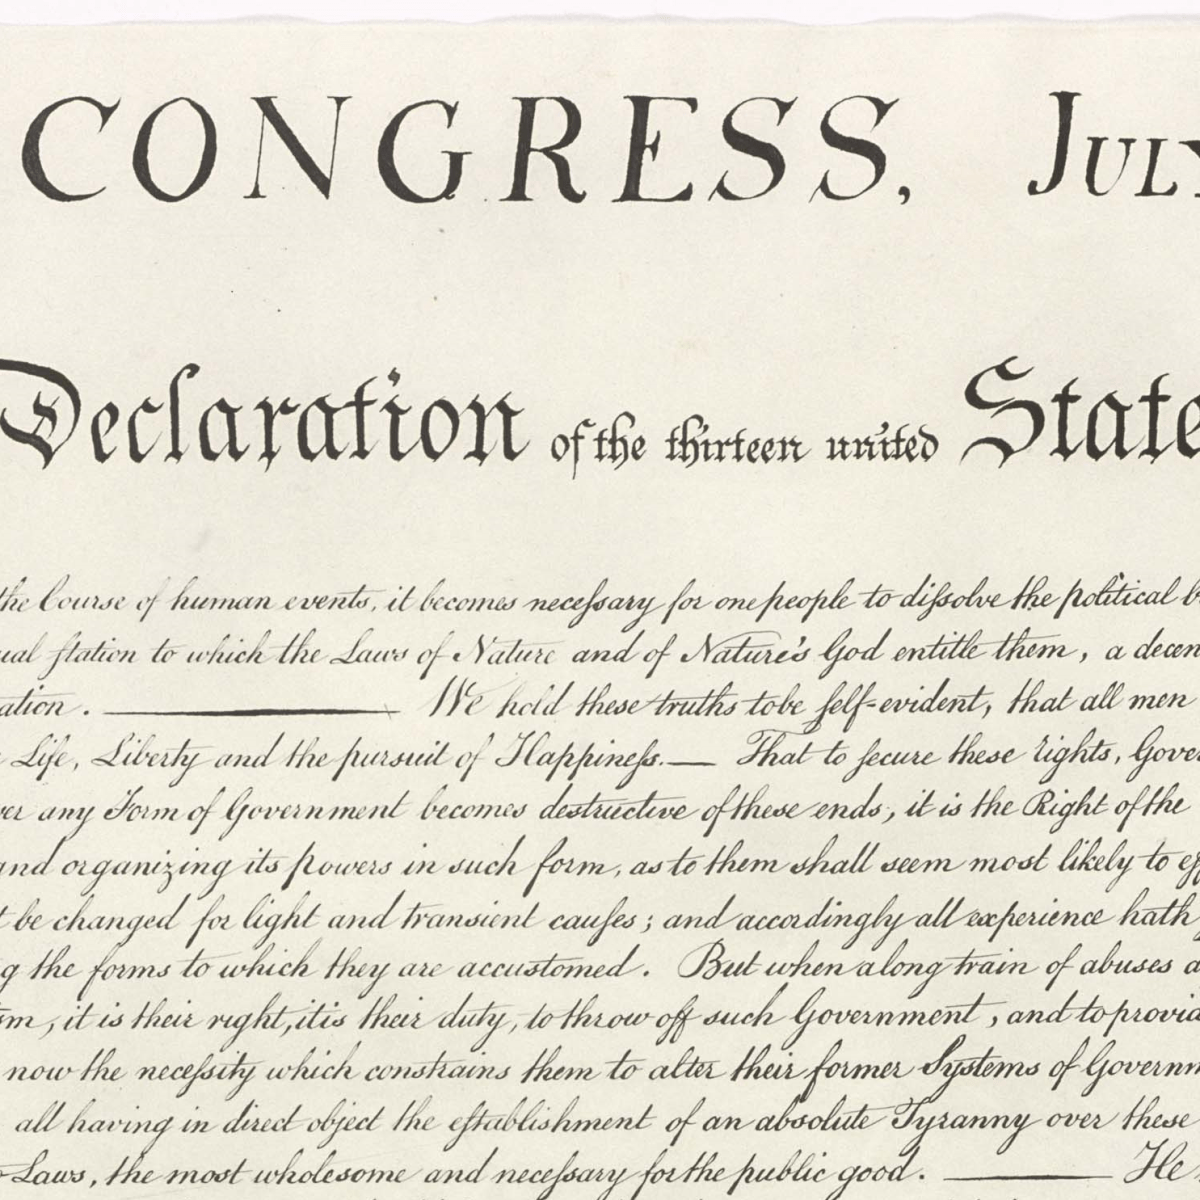 CONGRESS, JULY
Declaration of the thirteen united State
the Course of human events, it becomes neceſsary for one people to diſsolve the political b
ual ſtation to which the Laws of Nature and of Nature's God entitle them, a decen
ation. ——— We hold these truths to be ſelf-evident, that all men
Life, Liberty and the pursuit of Happineſs. — That to ſecure these rights, Gover
ver any Form of Government becomes destructive of these ends, it is the Right of the
and organizing its powers in such form, as to them shall seem most likely to eff
t be changed for light and transient cauſes; and accordingly all experience hath
g the forms to which they are accustomed. But when a long train of abuses a
sm, it is their right, it is their duty, to throw off such Government, and to provid
now the neceſsity which constrains them to alter their former Systems of Governm
all having in direct object the eſtablishment of an absolute Tyranny over these
Laws, the most wholesome and neceſsary for the public good. ——— He